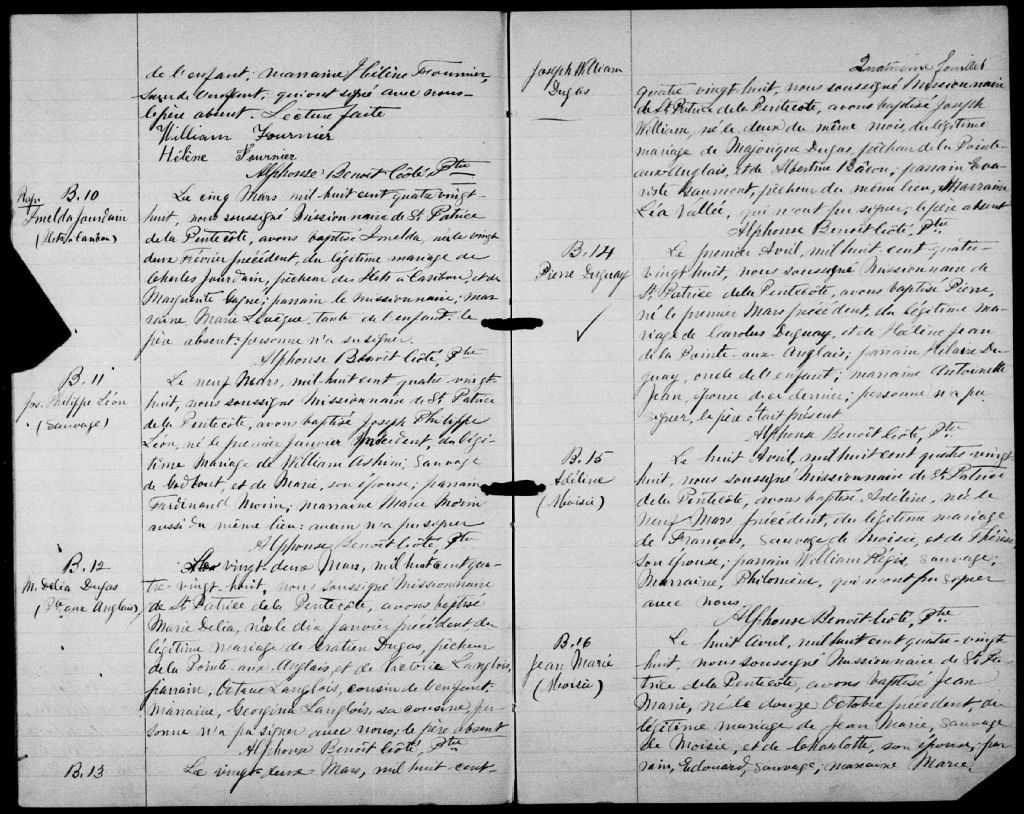 de l'enfant; marraine Hélène Fournier,
soeur de l'enfant, qui ont signé avec nous
le père absent. Lecture faite
William Fournier
Hélène Fournier
Alphonse Benoît Côté, Ptre
B.10
Imelda Jourdain
(Ilets à Caribou)
Le cinq Mars mil huit cent quatre vingt
huit, nous soussigné Missionnaire de St Patrice
de la Pentecôte, avons baptisé Imelda, née le vingt
deux Février précédent, du légitime mariage de
Charles Jourdain, pêcheur des Ilets à Caribou, et de
Marguerite Gagné; parrain le missionnaire; mar
raine Marie Lévêque, tante de l'enfant. le
père absent. personne n'a su signer.
Alphonse Benoît Côté, Ptre
B.11
Jos. Philippe Léon
(Sauvage)
Le neuf Mars, mil huit cent quatre-vingt
huit, nous soussigné Missionnaire de St Patrice
de la Pentecôte, avons baptisé Joseph Philippe
Léon, né le premier Janvier précédent, du légi
time mariage de William Ashini, Sauvage
de Godbout, et de Marie, son épouse; parrain
Ferdinand Morin; marraine Marie Morin
aussi du même lieu: aucun n'a pu signer
Alphonse Benoît Côté, Ptre
B.12
M. Délia Dugas
(Pte aux Anglais)
Le vingt-deux Mars, mil huit cent qua-
tre-vingt-huit, nous soussigné Missionnaire
de St Patrice de la Pentecôte, avons baptisé
Marie Delia, née le dix Janvier précédent du
légitime mariage de Gratien Dugas, pêcheur
de la Pointe-aux-Anglais et de Victoria Langlois,
parrain, Octave Langlois, cousin de l'enfant.
Marraine, Georgina Langlois, sa cousine, per
sonne n'a pu signer avec nous; le père absent
Alphonse Benoît Côté, Ptre
B.13
Le vingt-deux Mars, mil huit-cent-
Joseph William
Dugas
Quatrième feuillet
quatre vingt huit, nous soussigné Missionnaire
de St Patrice de la Pentecôte, avons baptisé Joseph
William, né le deux du même mois, du légitime
mariage de Majorique Dugas, pêcheur de la Pointe-
aux-Anglais, et de Albertine Bacon; parrain Eva
riste Beaumont, pêcheur du même lieu, Marraine
Léa Vallée, qui n'ont pu signer; le père absent
Alphonse Benoît Côté, Ptre
B.14
Pierre Duguay
Le premier Avril, mil huit cent quatre-
vingt huit, nous soussigné Missionnaire de
St Patrice de la Pentecôte, avons baptisé Pierre,
né le premier Mars précédent, du légitime ma-
riage de Carolus Deguay, et de Hélène Jean
de la Pointe-aux-Anglais; parrain Hilaire De-
guay, oncle de l'enfant; marraine Antoinette
Jean, épouse de ce dernier; personne n'a pu
signer, le père était présent
Alphonse Benoît Côté, Ptre
B.15
Adéline
(Moisie)
Le huit Avril, mil huit cent quatre vingt
huit, nous soussigné missionnaire de St Patrice
de la Pentecôte, avons baptisé Adéline, née le
neuf Mars précédent, du légitime mariage
de François, Sauvage de Moisie, et de Thérèse
son épouse; parrain William Régis, sauvage;
Marraine, Philomène, qui n'ont pu signer
avec nous.
Alphonse Benoît Côté, Ptre
B.16
Jean Marie
(Moisie)
Le huit Avril, mil huit cent quatre-vingt
huit, nous soussigné Missionnaire de St Pa-
trice de la Pentecôte, avons baptisé Jean
Marie, né le douze Octobre précédent, du
légitime mariage de Jean Marie, Sauvage
de Moisie, et de Charlotte, son épouse; par
rain, Edouard, sauvage; marraine Marie